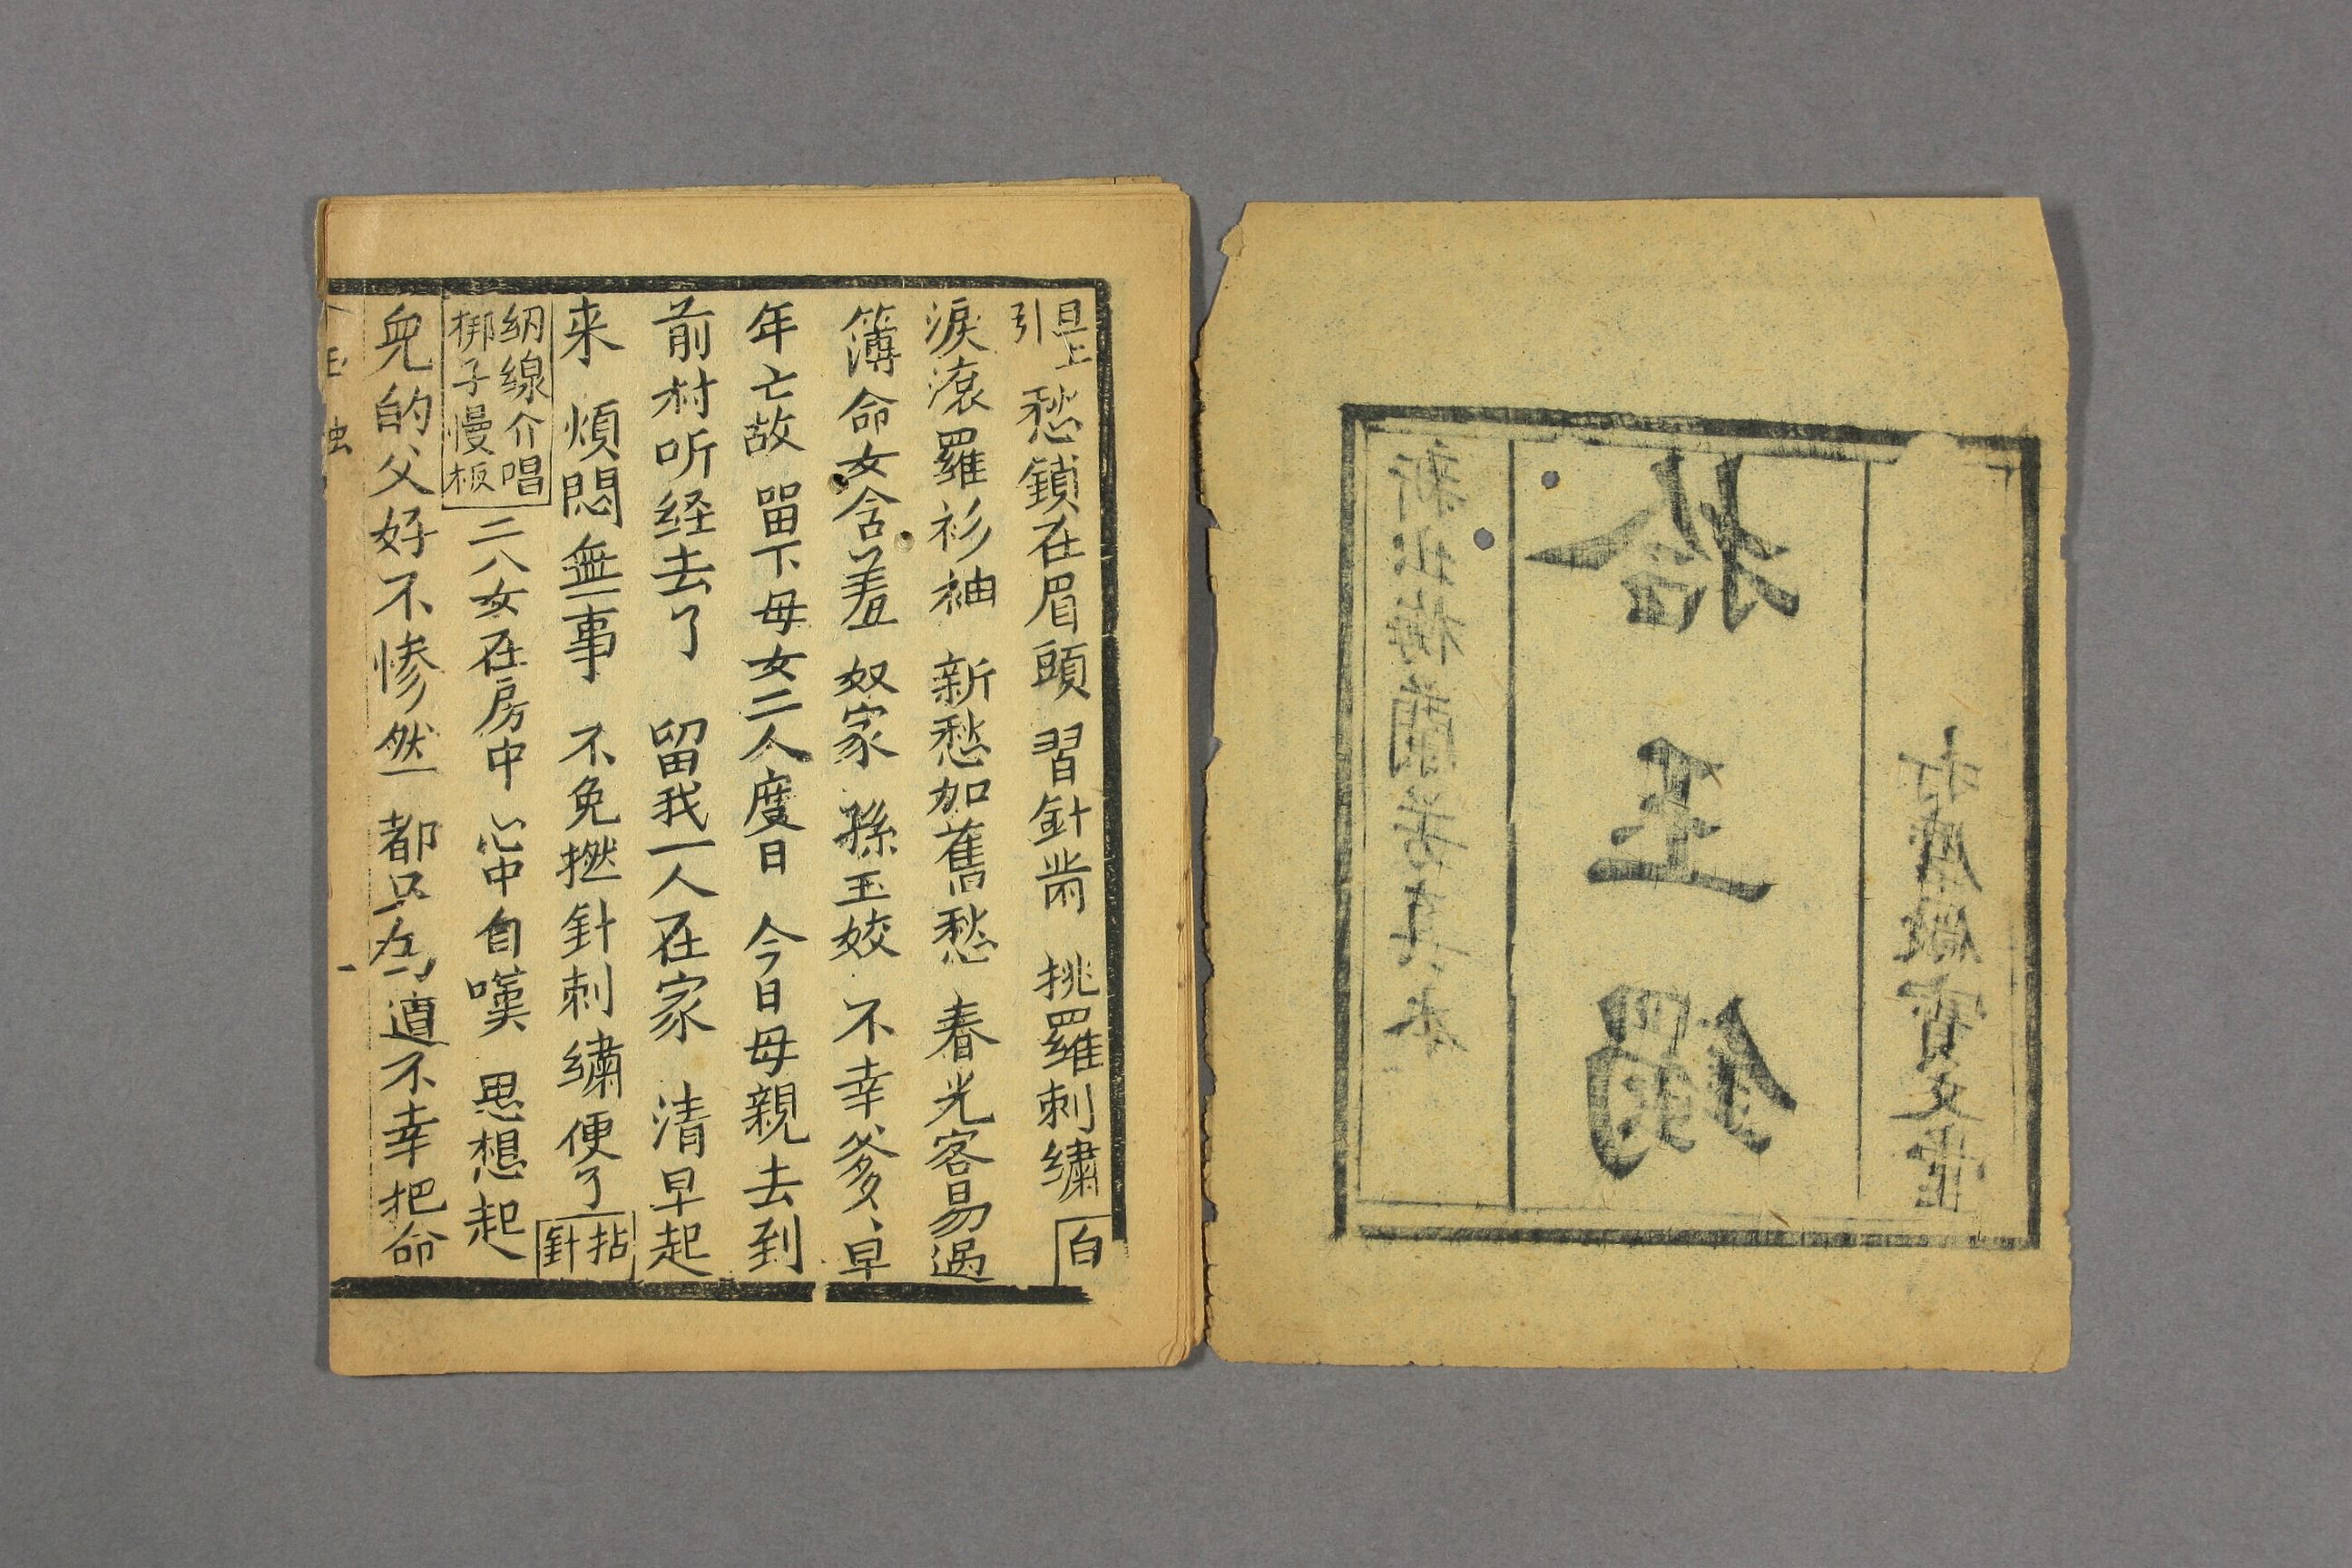 打磨廠寳文堂
拾玉鐲
新出梅蘭芳真本
旦上引 愁鎖在眉頭 習針黹 挑羅刺繡 白
淚滾羅衫袖 新愁加舊愁 春光容易過
簿命女含羞 奴家 孫玉姣 不幸爹、早
年亡故 留下母女二人度日 今日母親去到
前村听経去了 留我一人在家 清早起
来 煩悶無事 不免撚針刺繡便了 拈針
纫線介唱 梆子慢板 二八女在房中 心中自嘆 思想起
兒的父好不惨然 都只為道不幸把命